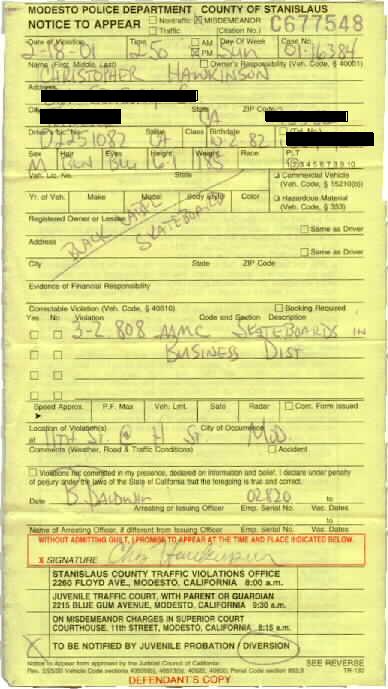 MODESTO POLICE DEPARTMENT COUNTY OF STANISLAUS
NOTICE TO APPEAR
Nontraffic MISDEMEANOR
Traffic (Citation No.) C677548
Date of Violation Time AM Day Of Week Case No.
2-18-01 1250 PM SUN 01-16384
Name (First, Middle, Last) Owner's Responsibility (Veh. Code, § 40001)
CHRISTOPHER HAWKINSON
Address
City State ZIP Code
CA
Driver's Lic. No. State Class Birthdate
D2251082 CA
Sex Hair Eyes Height Weight Race PLT
M BRN BLU 185 1 2 3 4 5 6 7 8 9 10
Veh. Lic. No. State Commercial Vehicle
(Veh. Code, § 15210(b))
Yr. of Veh. Make Model Body style Color Hazardous Material
(Veh. Code, § 353)
BLACK LABEL SKATEBOARD
Registered Owner or Lessee Same as Driver
Address
Same as Driver
City State ZIP Code
Evidence of Financial Responsibility
Correctable Violation (Veh. Code, § 40610) Booking Required
Yes No Violation Code and Section Description
3-2.808 MMC SKATEBOARDS IN
BUSINESS DIST
Speed Approx. P.F. Max Veh. Lmt. Safe Radar Com. Form issued
Location of Violation(s) City of Occurrence
at 11TH ST. @ H ST MOD.
Comments (Weather, Road & Traffic Conditions) Accident
Violations not committed in my presence, declared on information and belief. I declare under penalty
of perjury under the laws of the State of California that the foregoing is true and correct.
B. BALDWIN 02820 to
Date Arresting or Issuing Officer Emp. Serial No. Vac. Dates
to
Name of Arresting Officer, if different from Issuing Officer Emp. Serial No. Vac. Dates
WITHOUT ADMITTING GUILT, I PROMISE TO APPEAR AT THE TIME AND PLACE INDICATED BELOW.
X SIGNATURE Chris Hawkinson
STANISLAUS COUNTY TRAFFIC VIOLATIONS OFFICE
2260 FLOYD AVE., MODESTO, CALIFORNIA 8:00 a.m.
JUVENILE TRAFFIC COURT, WITH PARENT OR GUARDIAN
2215 BLUE GUM AVENUE, MODESTO, CALIFORNIA 9:30 a.m.
ON MISDEMEANOR CHARGES IN SUPERIOR COURT
COURTHOUSE, 11th STREET, MODESTO, CALIFORNIA 8:15 a.m.
X TO BE NOTIFIED BY JUVENILE PROBATION / DIVERSION
Notice to Appear form approved by the Judicial Council of California SEE REVERSE
TR-130
DEFENDANT'S COPY